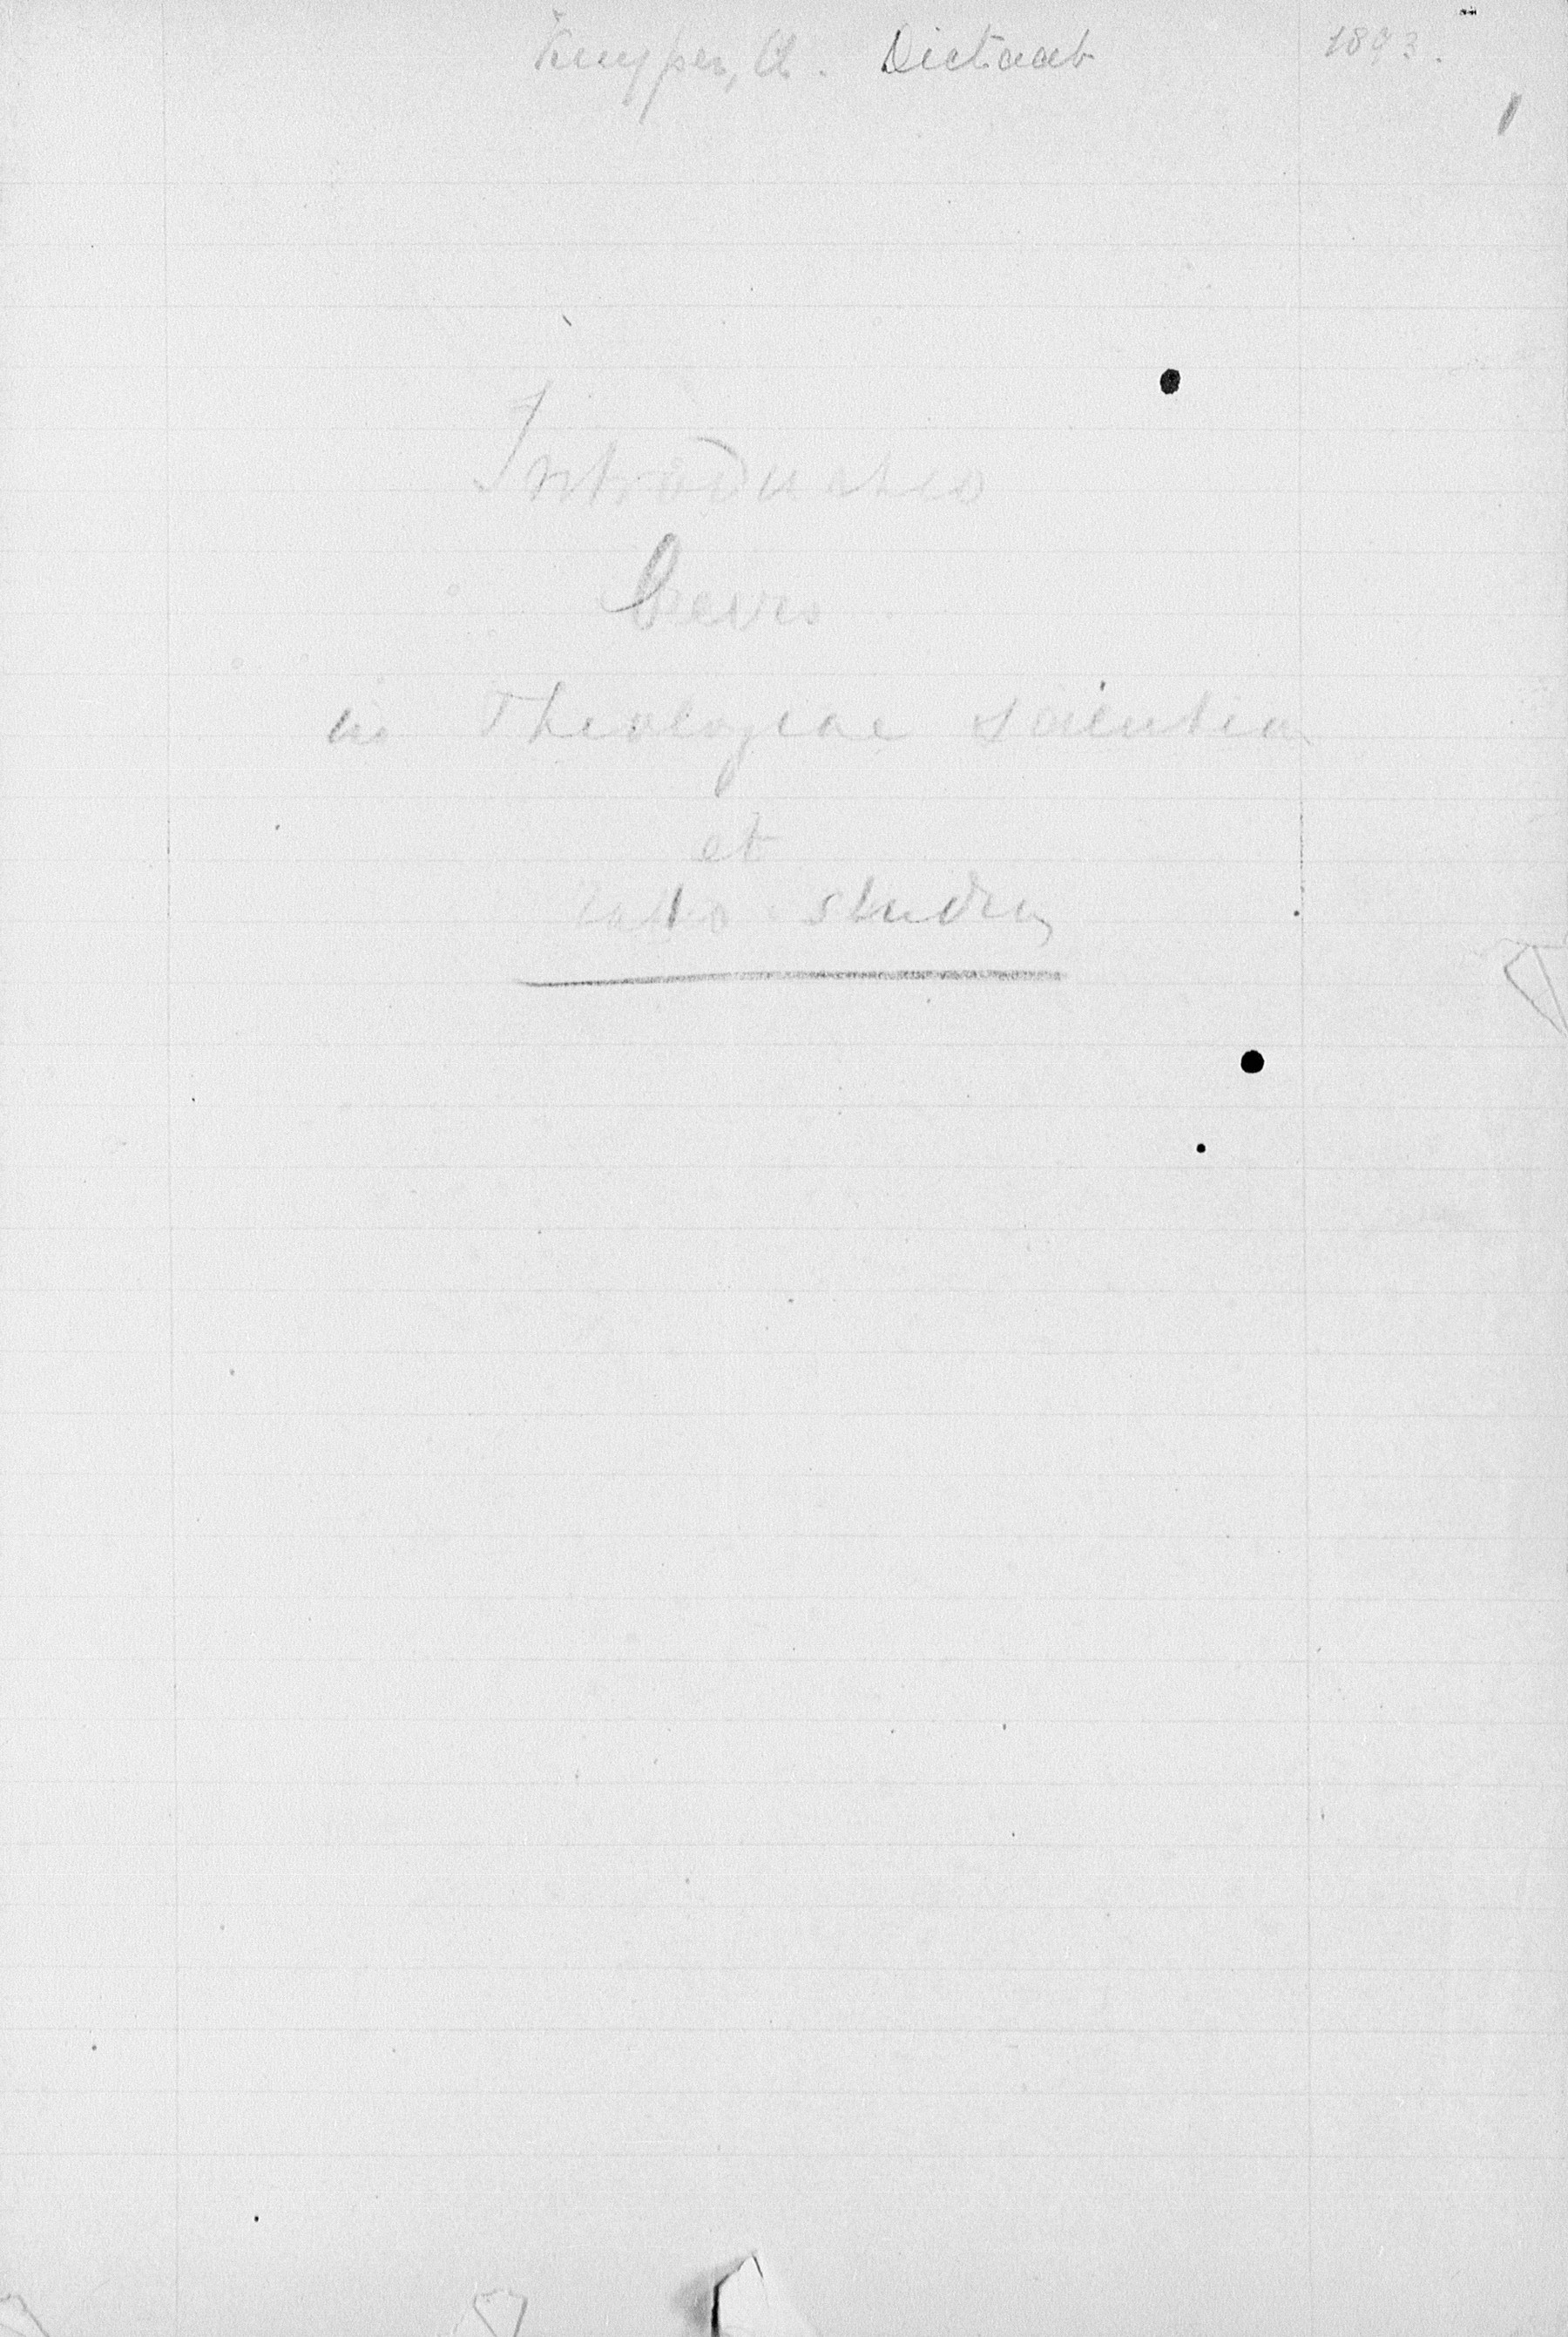 Kuyper, A. Dictaat 1893.
Introductio
brevis
in Theologiae scientiam
et
ratio studii